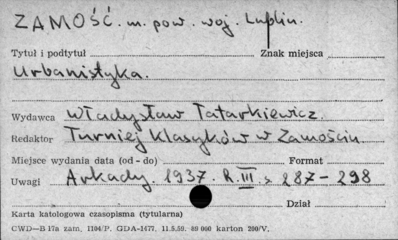 ZAMOŚĆ. m. pow. woj. Lublin.
Tytuł i podtytuł Znak miejsca
Urbanistyka.
Wydawca Władysław Tatarkiewicz.
Redaktor Turniej klasyków w Zamościu
Miejsce wydania data (od - do) Format
Uwagi Arkady. 1937. R. III. s 287-298
Dział
Karta katologowa czasopisma (tytularna)
CWD—B 17a zam. 1104/P. GDA-1477. 11.5.50. 80 000 karton 200/V.